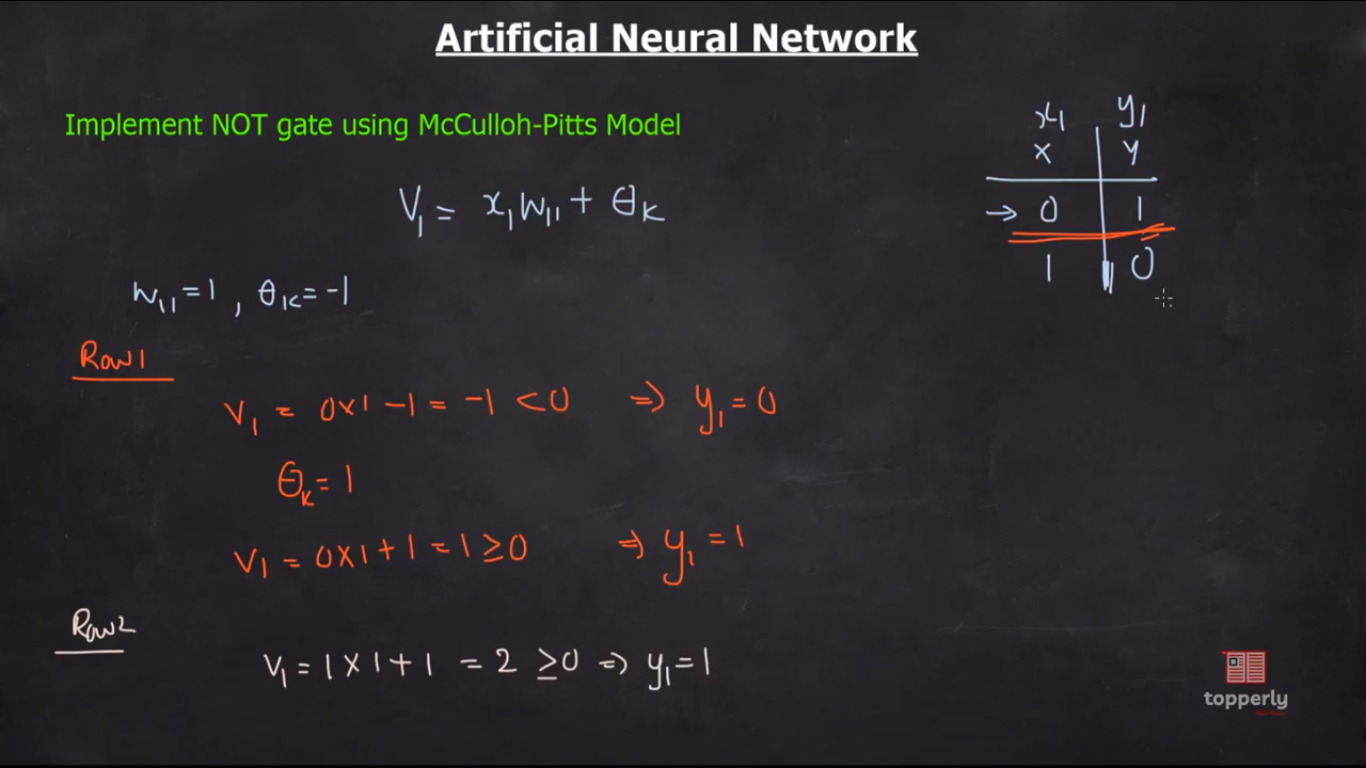 Artificial Neural Network
Implement NOT gate using McCulloh-Pitts Model
x₁ y₁
x y
0 1
1 0
V₁ = x₁w₁₁ + θₖ
w₁₁ = 1 , θₖ = -1
Row1
V₁ = 0x1 - 1 = -1 < 0 ⇒ y₁ = 0
θₖ = 1
V₁ = 0x1 + 1 = 1 ≥ 0 ⇒ y₁ = 1
Row2
V₁ = 1x1 + 1 = 2 ≥ 0 ⇒ y₁ = 1
topperly